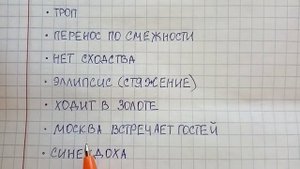 • ТРОП
• ПЕРЕНОС ПО СМЕЖНОСТИ
• НЕТ СХОДСТВА
• ЭЛЛИПСИС (СТЯЖЕНИЕ)
• ХОДИТ В ЗОЛОТЕ
• МОСКВА ВСТРЕЧАЕТ ГОСТЕЙ
• СИНЕКДОХА